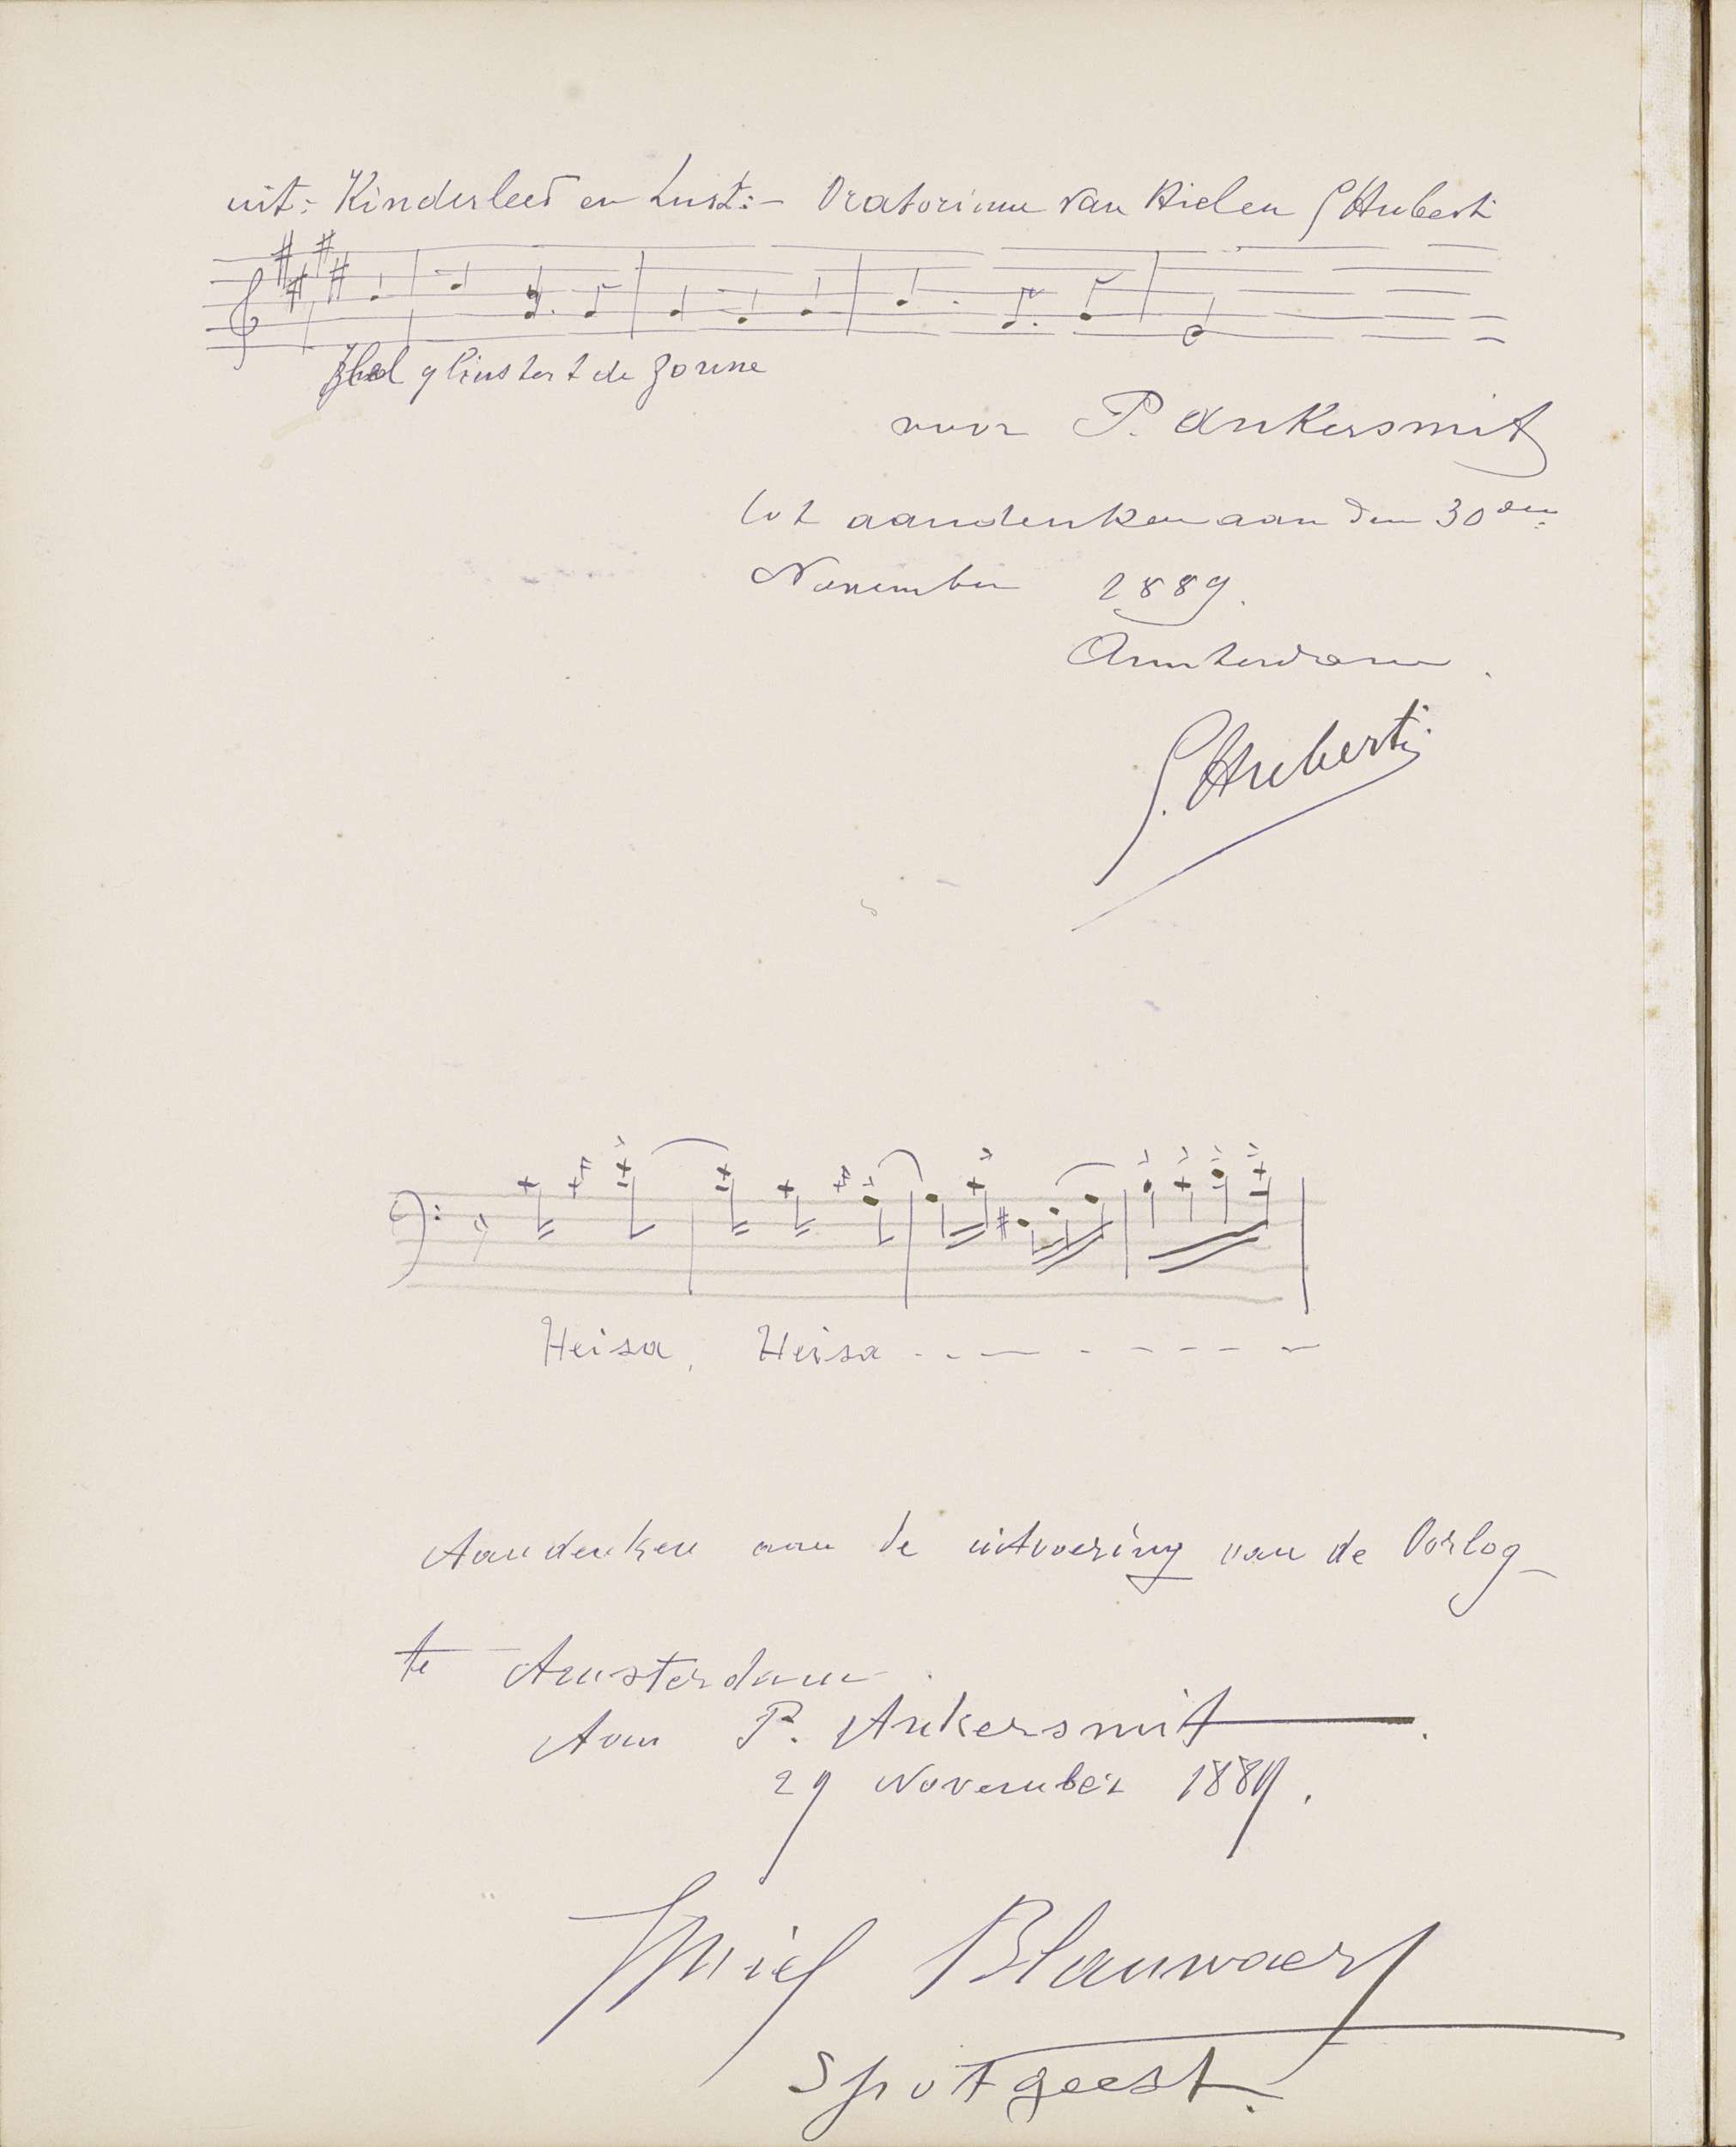 uit: Kinderleed en Lust:- Oratorium van Hielen G Huberti
Heel glinstert de zonne
voor P. Ankersmit
tot aandenken aan den 30den
November 1889.
Amsterdam.
G. Huberti
Heisa, Heisa - - - - - - - -
Aandenken aan de uitvoering van de Oorlog
te Amsterdam.
Aan P. Ankersmit.
29 November 1889.
Emiel Blauwaert
Spotgeest.